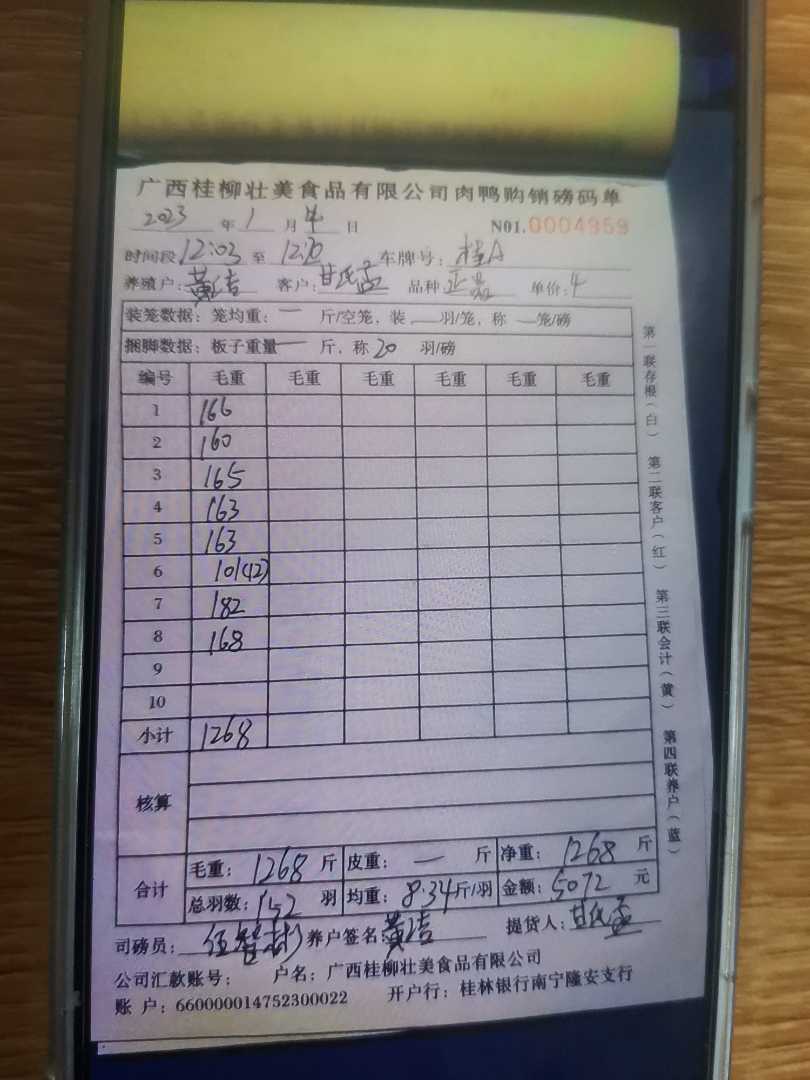 广西桂柳壮美食品有限公司肉鸭购销磅码单
2023 年 1 月 4 日 N01.0004959
时间段 12:03 至 12:20 车牌号: 桂A
养殖户: 黄洁 客户: 甘氏孟 品种 正品 单价: 4
装笼数据: 笼均重: — 斤/空笼, 装 — 羽/笼, 称 — 笼/磅
捆脚数据: 板子重量 — 斤, 称 20 羽/磅
编号 毛重 毛重 毛重 毛重 毛重 毛重
1 166
2 160
3 165
4 163
5 163
6 101(12)
7 182
8 168
9
10
小计 1268
核算
合计
毛重: 1268 斤 皮重: — 斤 净重: 1268 斤
总羽数: 152 羽 均重: 8.34 斤/羽 金额: 5072 元
司磅员: 养户签名: 黄洁 提货人: 甘氏孟
公司汇款账号: 户名: 广西桂柳壮美食品有限公司
账 户: 660000014752300022 开户行: 桂林银行南宁隆安支行
第一联存根(白) 第二联客户(红) 第三联会计(黄) 第四联养户(蓝)